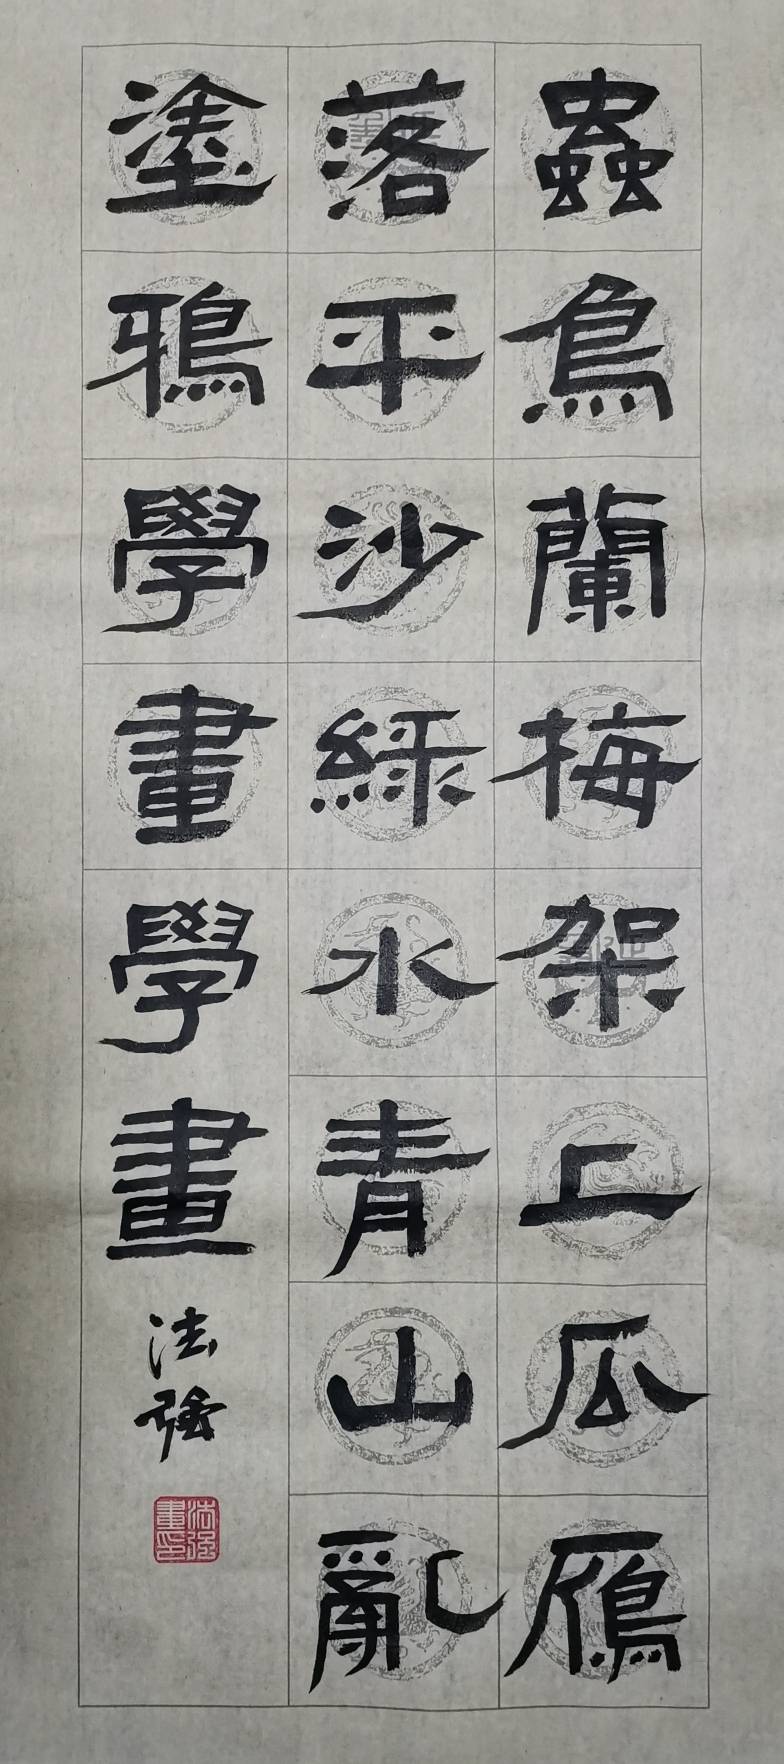 蟲鳥蘭梅架上瓜鴈
落平沙綠水青山亂
塗鴉學畫學畫
法強
法強畫印